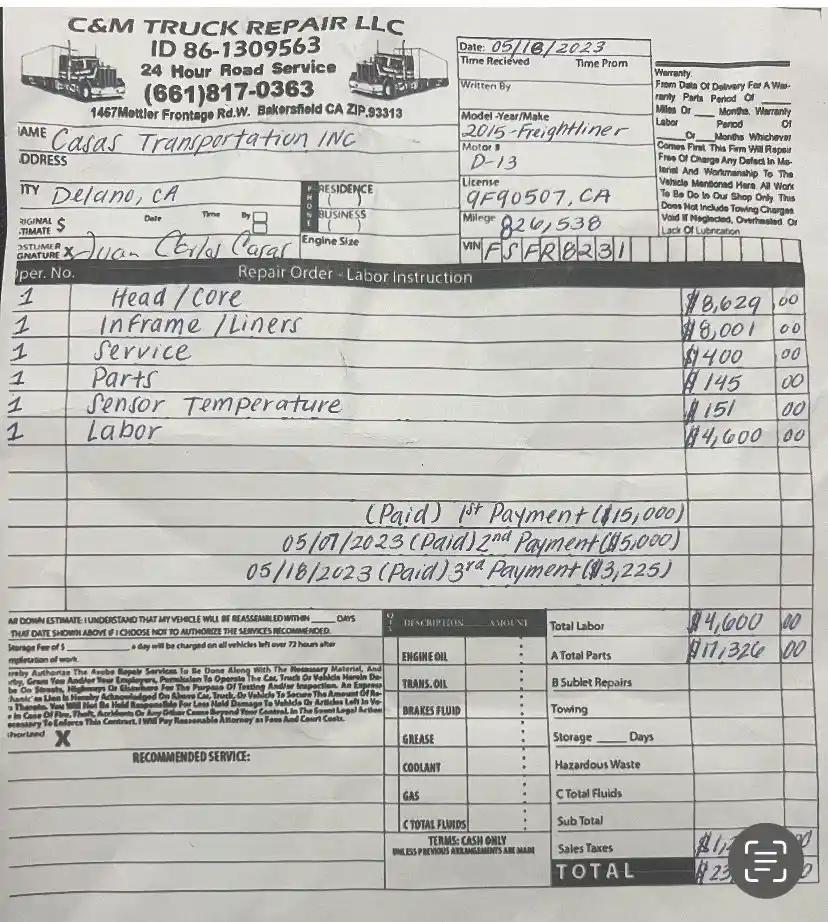 C&M TRUCK REPAIR LLC
ID 86-1309563
24 Hour Road Service
(661)817-0363
1467 Mettler Frontage Rd.W. Bakersfield CA ZIP.93313
Date: 05/18/2023
Time Recieved Time Prom
Written By
Model-Year/Make
2015-Freightliner
Motor #
D-13
License
9F90507, CA
Milege 826,538
VIN FSFR8231
Warranty
From Data Of Delivery For A War-
ranty Parts Period Of ____
Miles Or ___ Months. Warranty
Labor Period Of
___Or___ Months Whichever
Comes First. This Firm Will Repair
Free Of Charge Any Defect In Ma-
terial And Workmanship To The
Vehicle Mentioned Here. All Work
To Be Do In Our Shop Only This
Does Not Include Towing Charges
Void If Neglected, Overheated Or
Lack Of Lubrication
AME Casas Transportation INC
DDRESS
ITY Delano, CA
PHONE
RESIDENCE
( )
BUSINESS
( )
RIGINAL $
TIMATE
Date Time By
OSTUMER
GNATURE X Juan Carlos Casas
Engine Size
per. No. Repair Order - Labor Instruction
1 Head / Core $8,629 00
1 Inframe / Liners $8,001 00
1 Service $400 00
1 Parts $145 00
1 Sensor Temperature $151 00
1 Labor $4,600 00
(Paid) 1st Payment ($15,000)
05/07/2023 (Paid) 2nd Payment ($5,000)
05/18/2023 (Paid) 3rd Payment ($3,225)
DOWN ESTIMATE: I UNDERSTAND THAT MY VEHICLE WILL BE REASSEMBLED WITHIN ____ DAYS
THAT DATE SHOWN ABOVE IF I CHOOSE NOT TO AUTHORIZE THE SERVICES RECOMMENDED.
Storage Fee of $ ____ a day will be charged on all vehicles left over 72 hours after
mpletation of work.
reby Authorize The Avobe Repair Services To Be Done Along With The Necessary Material, And
rby, Grant You And/or Your Employers, Permission To Operate The Car, Truck Or Vehicle Herein De-
Be On Streets, Highways Or Elsewhere For The Purpose Of Testing And/or Inspection. An Express
hanic's Lien Is Hereby Acknowledged On Above Car, Truck, Or Vehicle To Secure The Amount Of Re-
s Thereto. You Will Not Be Held Responsible For Less Held Damage To Vehicle Or Articles Left In Ve-
e In Case Of Fire, Theft, Accidents Or Any Other Cause Beyond Your Control. In The Sount Legal Action
ecessary To Enforce This Contract, I Will Pay Reasonable Attorney as Fees And Court Costs.
thorized X
RECOMMENDED SERVICE:
QTY DESCRIPTION AMOUNT
ENGINE OIL
TRANS. OIL
BRAKES FLUID
GREASE
COOLANT
GAS
C TOTAL FLUIDS
TERMS: CASH ONLY
UNLESS PREVIOUS ARRANGEMENTS ARE MADE
Total Labor $4,600 00
A Total Parts $17,326 00
B Sublet Repairs
Towing
Storage ____ Days
Hazardous Waste
C Total Fluids
Sub Total
Sales Taxes $1,
TOTAL $23